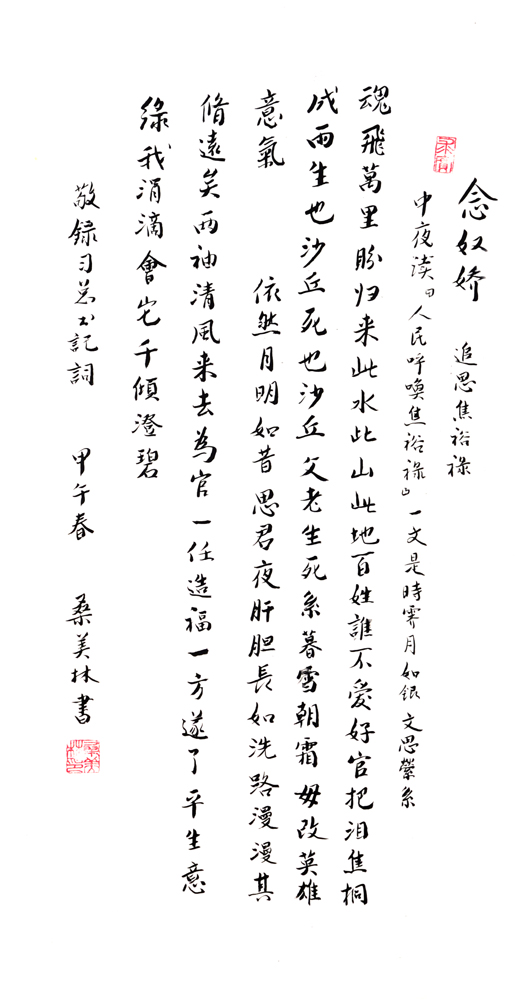 念奴娇 追思焦裕禄
中夜读《人民呼唤焦裕禄》一文是時霁月如銀文思縈系
魂飛萬里盼归来此水此山此地百姓誰不愛好官把泪焦桐
成雨生也沙丘死也沙丘父老生死系暮雪朝霜毋改英雄
意氣 依然月明如昔思君夜夜肝胆長如洗路漫漫其
脩遠矣两袖清風来去為官一任造福一方遂了平生意
绿我涓滴會它千倾澄碧
敬録习总书記詞 甲午春 桑美林書